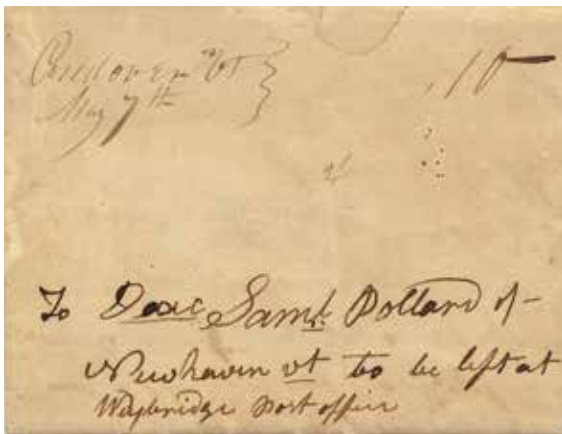 Andover Vt
May 7th
10
To Deac Saml. Pollard of
Newhaven vt to be left at
Waybridge Post office